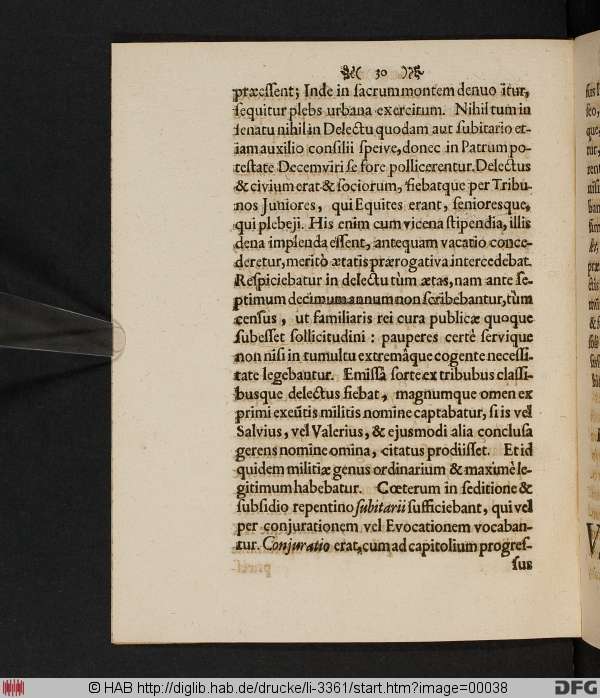 ( 30 )
præessent; Inde in sacrum montem denuo itur,
sequitur plebs urbana exercitum. Nihil tum in
senatu nihil in Delectu quodam aut subitario et-
iam auxilio consilii speive, donec in Patrum po-
testate Decemviri se fore pollicerentur. Delectus
& civium erat & sociorum, fiebatque per Tribu-
nos Juniores, qui Equites erant, senioresque,
qui plebeji. His enim cum vicena stipendia, illis
dena implenda essent, antequam vacatio conce-
deretur, meritò ætatis prærogativa intercedebat.
Respiciebatur in delectu tùm ætas, nam ante se-
ptimum decimum annum non scribebantur, tùm
census, ut familiaris rei cura publicæ quoque
subesset sollicitudini: pauperes certè servique
non nisi in tumultu extremâque cogente necessi-
tate legebantur. Emissâ sorte ex tribubus classi-
busque delectus fiebat, magnumque omen ex
primi exeūtis militis nomine captabatur, si is vel
Salvius, vel Valerius, & ejusmodi alia conclusa
gerens nomine omina, citatus prodiisset. Et id
quidem militiæ genus ordinarium & maximè le-
gitimum habebatur. Cœterum in seditione &
subsidio repentino subitarii sufficiebant, qui vel
per conjurationem vel Evocationem vocaban-
tur. Conjuratio erat, cum ad capitolium progres-
sus
© HAB http://diglib.hab.de/drucke/li-3361/start.htm?image=00038
DFG